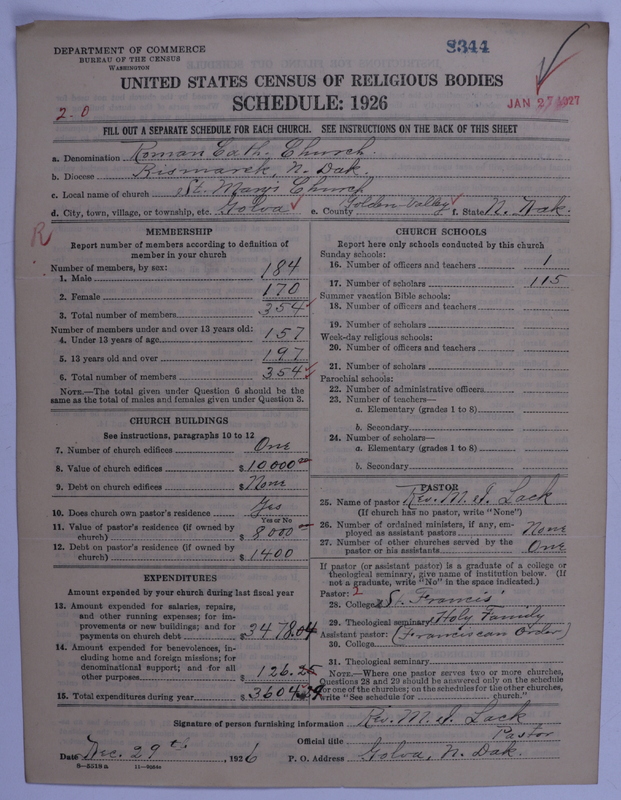 DEPARTMENT OF COMMERCE
BUREAU OF THE CENSUS
WASHINGTON
8344
UNITED STATES CENSUS OF RELIGIOUS BODIES
SCHEDULE: 1926
2.0
JAN 27 1927
FILL OUT A SEPARATE SCHEDULE FOR EACH CHURCH. SEE INSTRUCTIONS ON THE BACK OF THIS SHEET
a. Denomination Roman Cath. Church.
b. Diocese Bismarck, N. Dak.
c. Local name of church St. Marys Church
d. City, town, village, or township, etc. Golva e. County Golden Valley f. State N. Dak.
R
MEMBERSHIP
Report number of members according to definition of
member in your church
Number of members, by sex:
1. Male 184
2. Female 170
3. Total number of members 354
Number of members under and over 13 years old:
4. Under 13 years of age 157
5. 13 years old and over 197
6. Total number of members 354
NOTE.—The total given under Question 6 should be the
same as the total of males and females given under Question 3.
CHURCH BUILDINGS
See instructions, paragraphs 10 to 12
7. Number of church edifices One
8. Value of church edifices $10000 00
9. Debt on church edifices $None
10. Does church own pastor's residence Yes
Yes or No
11. Value of pastor's residence (if owned by
church) $8000
12. Debt on pastor's residence (if owned by
church) $1400
EXPENDITURES
Amount expended by your church during last fiscal year
13. Amount expended for salaries, repairs,
and other running expenses; for im-
provements or new buildings; and for
payments on church debt $3478.04
14. Amount expended for benevolences, in-
cluding home and foreign missions; for
denominational support; and for all
other purposes $126.25
15. Total expenditures during year $3604.29
CHURCH SCHOOLS
Report here only schools conducted by this church
Sunday schools:
16. Number of officers and teachers 1
17. Number of scholars 115
Summer vacation Bible schools:
18. Number of officers and teachers
19. Number of scholars
Week-day religious schools:
20. Number of officers and teachers
21. Number of scholars
Parochial schools:
22. Number of administrative officers
23. Number of teachers—
a. Elementary (grades 1 to 8)
b. Secondary
24. Number of scholars—
a. Elementary (grades 1 to 8)
b. Secondary
PASTOR
25. Name of pastor Rev. M. J. Lack
(If church has no pastor, write "None")
26. Number of ordained ministers, if any, em-
ployed as assistant pastors None
27. Number of other churches served by the
pastor or his assistants One
If pastor (or assistant pastor) is a graduate of a college or
theological seminary, give name of institution below. (If
not a graduate, write "No" in the space indicated.)
Pastor: 2
28. College St. Francis
29. Theological seminary Holy Family
Assistant pastor: (Franciscan Order)
30. College
31. Theological seminary
NOTE.—Where one pastor serves two or more churches,
Questions 28 and 29 should be answered only on the schedule
for one of the churches; on the schedules for the other churches,
write "See schedule for church."
Signature of person furnishing information Rev. M. J. Lack
Official title Pastor
Date Dec. 29th, 1926 P. O. Address Golva, N. Dak.
8—5518a 11—9564a